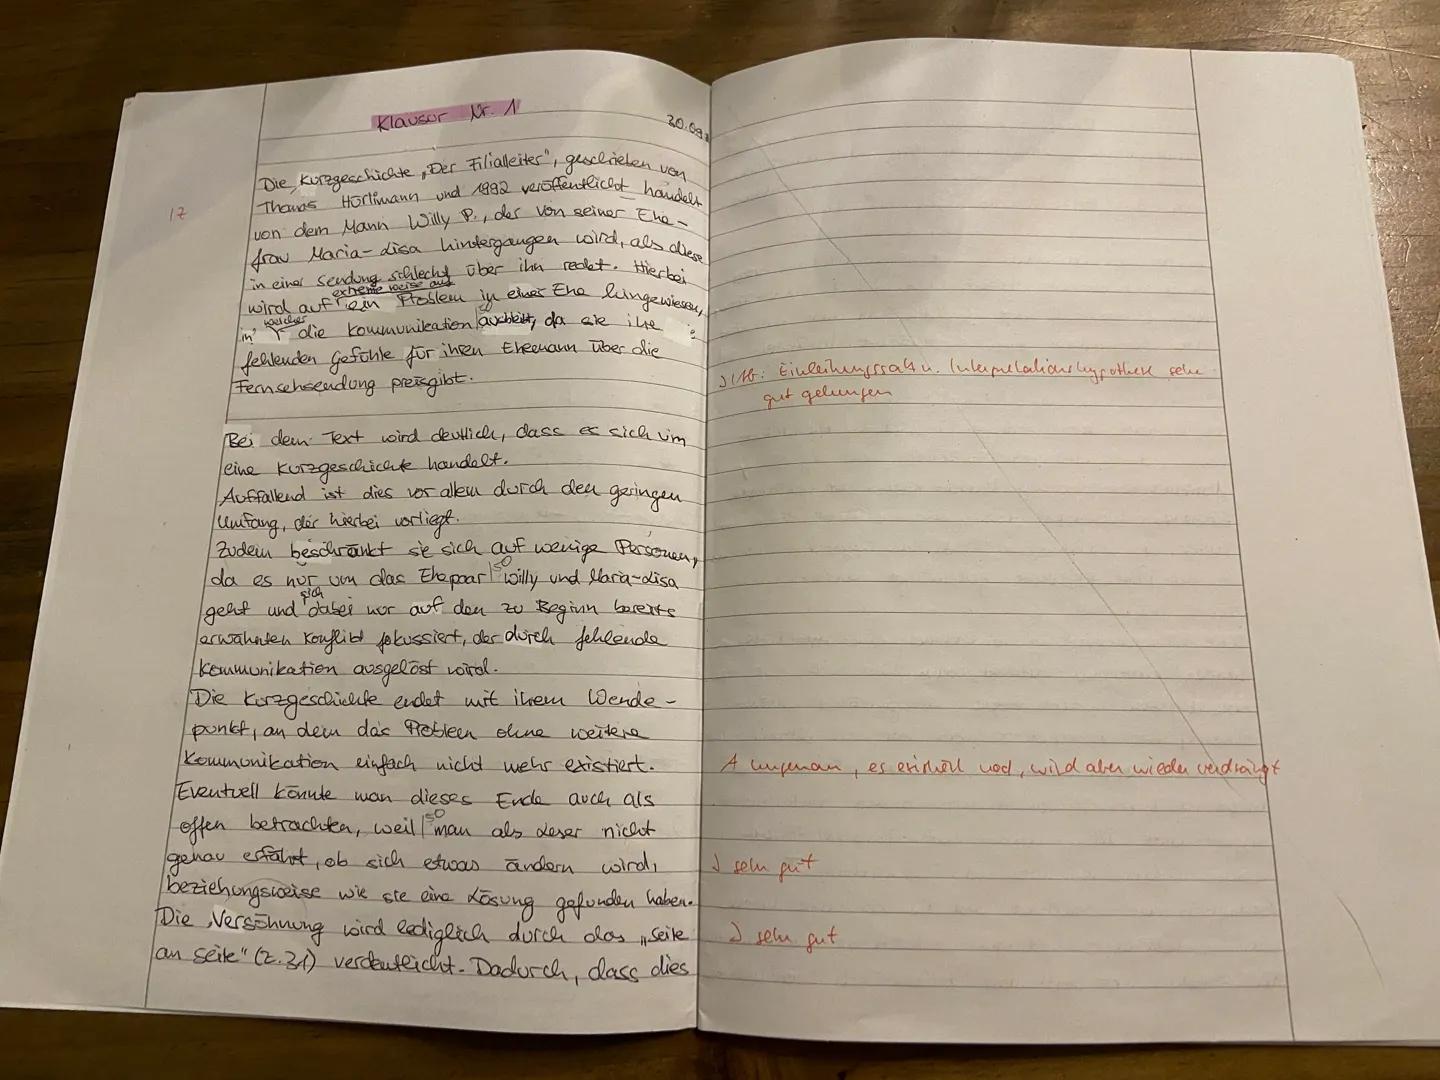 Klausur Nr. 1
30.09.
Die Kurzgeschichte „Der Filialleiter", geschrieben von
Thomas Hürlimann und 1992 veröffentlicht handelt
17
von dem Mann Willy P., der von seiner Ehe-
frau Maria-Lisa hintergangen wird, als diese
in einer Sendung schlecht über ihn redet. Hierbei
extreme weise auf
wird auf ein Problem in einer Ehe hingewiesen,
in welcher die Kommunikation ausbleibt, da sie ihre
fehlenden Gefühle für ihren Ehemann über die
Fernsehsendung preisgibt.
J Mb: Einleitungssatz u. Interpretationshypothese sehr
gut gelungen
Bei dem Text wird deutlich, dass es sich um
eine Kurzgeschichte handelt.
Auffallend ist dies vor allem durch den geringen
Umfang, der hierbei vorliegt.
Zudem beschränkt sie sich auf wenige Personen,
da es nur um das Ehepaar Willy und Maria-Lisa
geht und sich dabei nur auf den zu Beginn bereits
erwähnten Konflikt fokussiert, der durch fehlende
Kommunikation ausgelöst wird.
Die Kurzgeschichte endet mit ihrem Wende-
punkt, an dem das Problem ohne weitere
Kommunikation einfach nicht mehr existiert.
A ungenau, es existiert noch, wird aber wieder verdrängt
Eventuell könnte man dieses Ende auch als
offen betrachten, weil man als Leser nicht
genau erfährt, ob sich etwas ändern wird,
J sehr gut
beziehungsweise wie sie eine Lösung gefunden haben.
Die Versöhnung wird lediglich durch das „Seite
J sehr gut
an Seite" (Z. 31) verdeutlicht. Dadurch, dass dies